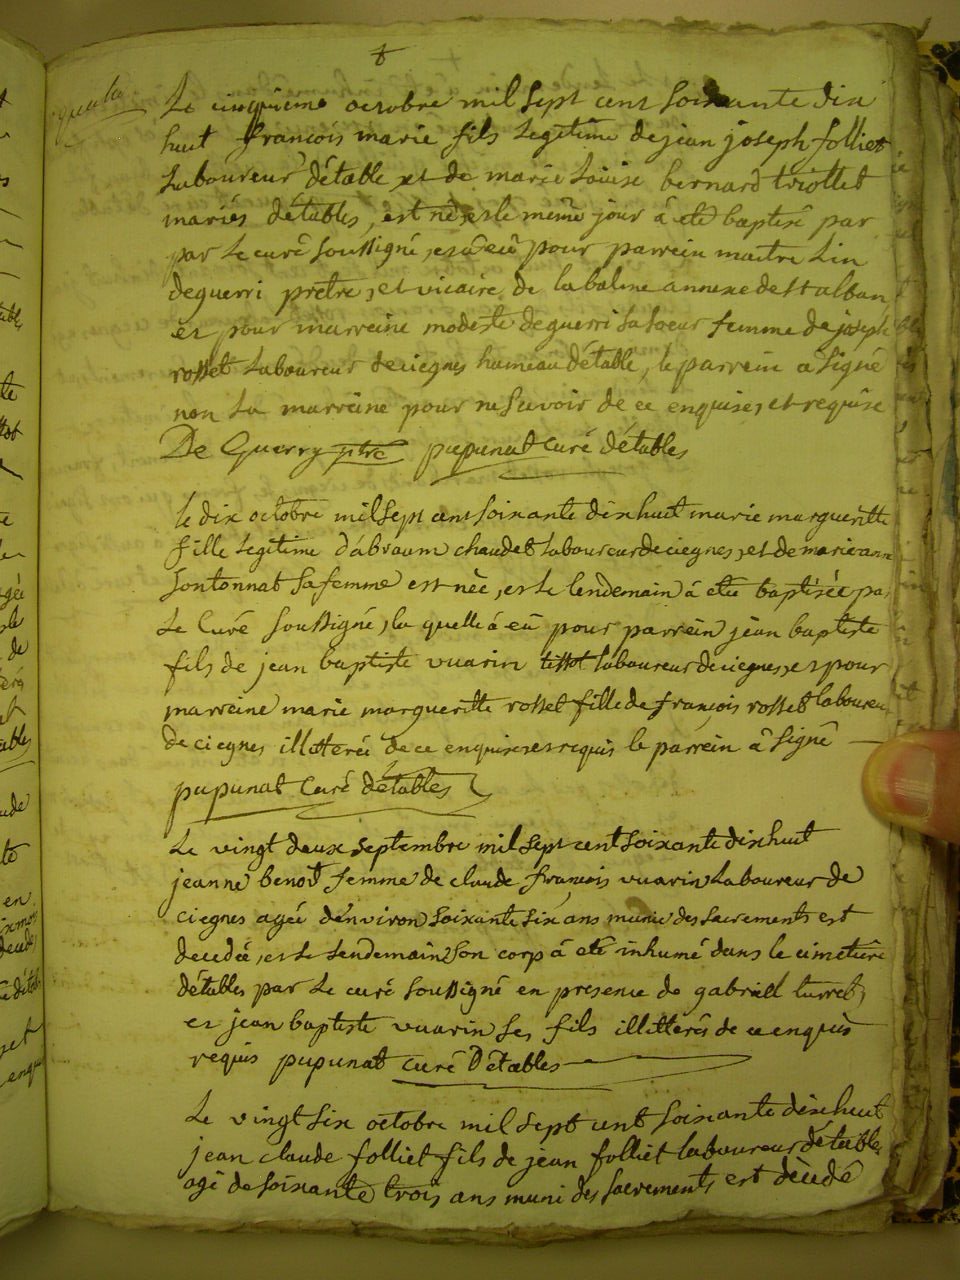 Le cinquieme octobre mil sept cent soixante dix
huit françois marie fils Legitime de jean joseph folliet
Laboureur détable et de marie Loüise bernard triollet
mariés détables, est né, et le même jour à eté baptisé par
par Le curé soussigné, et à eü pour parrein maitre Lin
deguerri prêtre, et vicaire de la balme annexe de st alban
et pour marreine modeste deguerri sa soeur femme de joseph
rosset Laboureur de ciegnes hameau détable, le parrein a signé
non La marreine pour ne savoir de ce enquise, et requise
De Guerry ptre pupunat curé détables
le dix octobre mil sept cent soixante dix huit marie margueritte
fille Legitime d'abraam chaudet Laboureur de ciegnes, et de marie anne
sontonnat sa femme est née, et Le lendemain à eté baptisée pa
Le Curé soussigné, la quelle à eü pour parrein jean baptiste
fils de jean baptiste vuarin tissot laboureur de ciegnes, et pour
marreine marie margueritte rosset fille de françois rosset laboureu
de ciegnes illitterée de ce enquise et requis le parrein à signé
pupunat Curé détables
Le vingt deux septembre mil sept cent soixante dix huit
jeanne benoit femme de claude françois vuarin Laboureur de
ciegnes agée d'environ soixante six ans munie des sacrements est
decedée, et Le lendemain son corp à eté inhumé dans le cimetiere
détables par Le curé soussigné en presence de gabriell turret
et jean baptiste vuarin ses fils illitterés de ce enquis
requis pupunat curé Détables
Le vingt six octobre mil sept cent soixante dix huit
jean claude folliet fils de jean folliet laboureur détable
agé de soixante trois ans muni des sacrements est dècedé